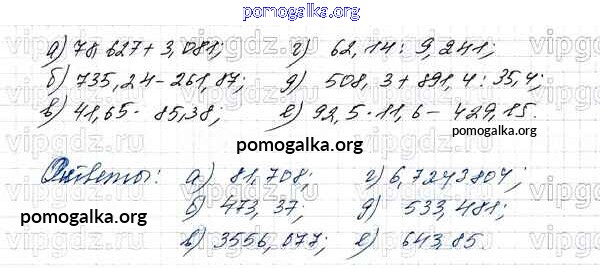 pomogalka.org
а) 78,627 + 3,081; г) 62,14 : 9,241;
б) 735,24 - 261,87; д) 508,3 + 891,4 : 35,4;
в) 41,65 · 85,38; е) 92,5 · 11,6 - 429,15.
pomogalka.org
pomogalka.org
Ответы: а) 81,708; г) 6,7243804;
б) 473,37; д) 533,481;
pomogalka.org
в) 3556,077; е) 643,85.